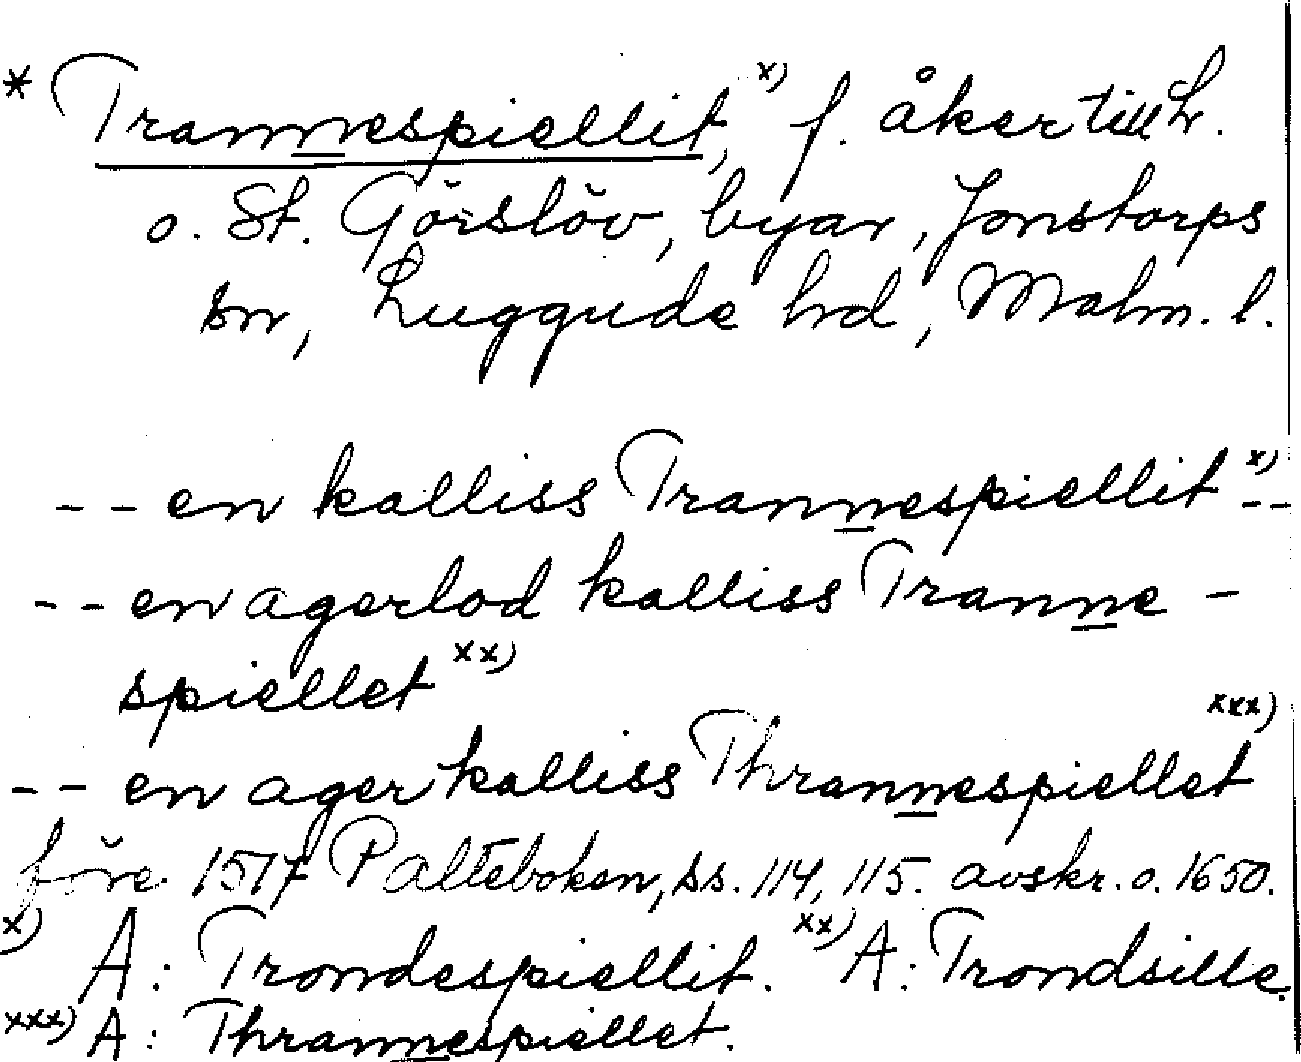 * Trannespiellit,x) f. åker till L.
o. St. Görslöv, byar, Jonstorps
sn, Luggude hd, Malm. l.
-- en kalliss Trannespiellit x) --
-- en agerlod kalliss Tranne-
spiellet xx)
-- en ager kalliss Thrannespiellet xxx)
före 1517 Palteboken, ss. 114, 115. avskr. o. 1650.
x) A: Trondespiellit. xx) A: Trondsille.
xxx) A: Thrannespiellet.